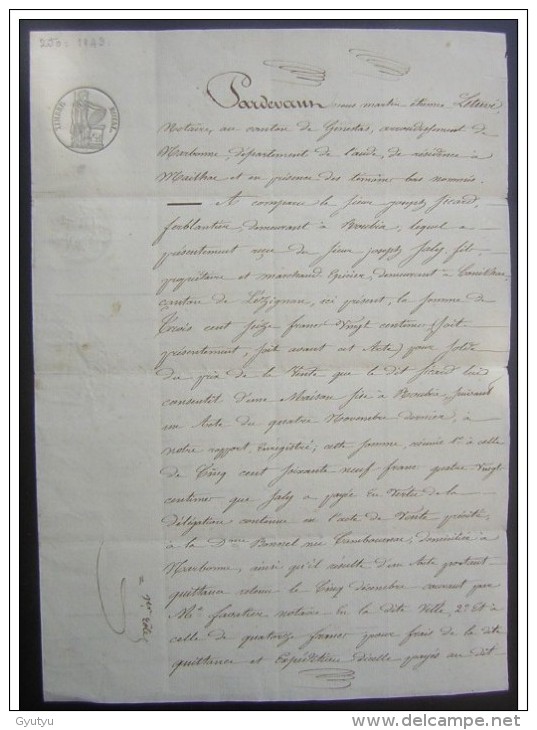 1843
TIMBRE ROYAL
Pardevant nous martin étienne
Notaire, au canton de Ginestas, arrondissement de
Narbonne, département de l'aude, de résidence à
Mailhac et en présence des témoins bas nommés.
A comparu le sieur joseph Sicard,
ferblantier, demeurant à Roubia, lequel a
présentement reçu du sieur joseph Saly fils,
propriétaire et marchand Epicier, demeurant à
canton de Lézignan, ici présent, la somme de
Trois cent seize francs Vingt centimes (soit
présentement, soit avant cet Acte) pour solde
du prix de la Vente que le dit Sicard lui
consentit d'une Maison sise à Roubia suivant
un Acte du quatre Novembre dernier, à
notre rapport, Enregistré; cette somme, réunie 1° à celle
de Cinq cent soixante neuf francs quatre Vingt
centimes que Saly a payée En Vertu de la
délégation contenue en l'acte de Vente précité,
à la Dame Bonnel née domiciliée à
Narbonne, ainsi qu'il résulte d'un Acte portant
quittance retenu le Cinq décembre courant par
Me notaire En la dite Ville, 2° Et à
celle de quatorze francs pour frais de la dite
quittance et Expédition d'icelle payés au dit
Gyutyu
www.delcampe.net